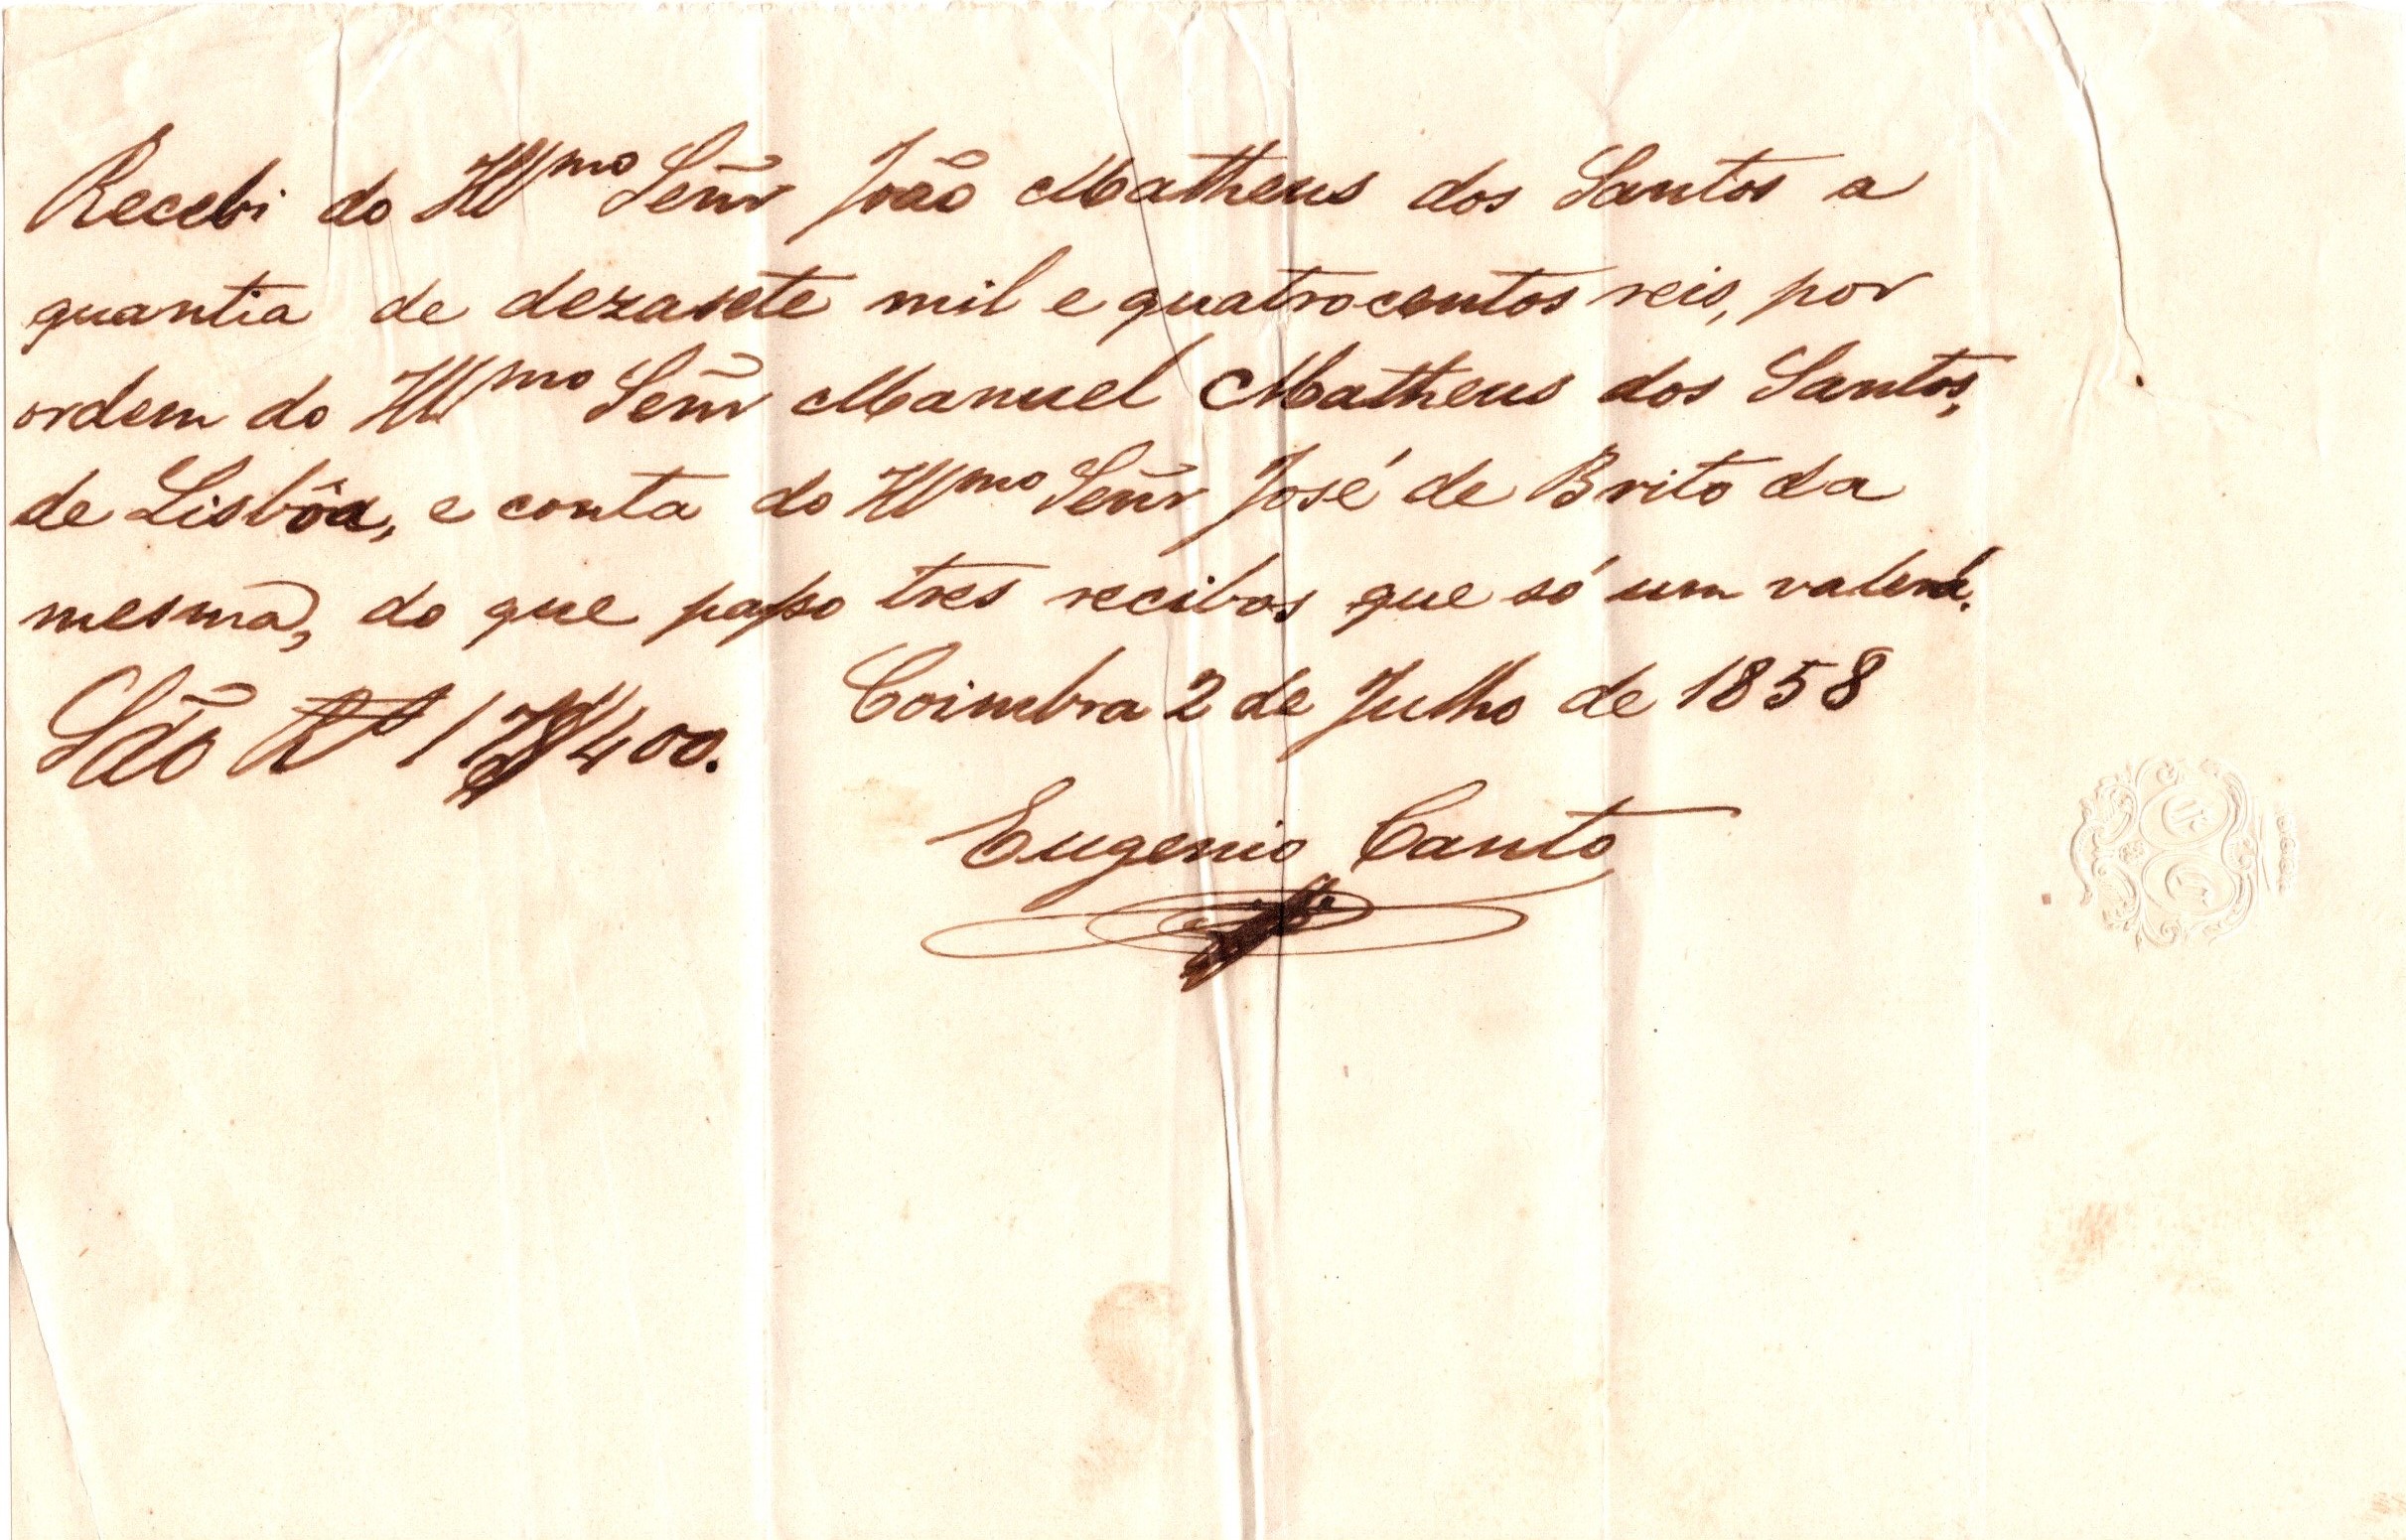 Recebi do Illmo Señr João Matheus dos Santos a
quantia de dezasete mil e quatrocentos reis, por
ordem do Illmo Señr Manuel Matheus dos Santos,
de Lisbôa, e conta do Illmo Señr José de Brito da
mesma, do que passo tres recibos que só um valerá.
Coimbra 2 de Julho de 1858
São Rs 17$400.
Eugenio Canto